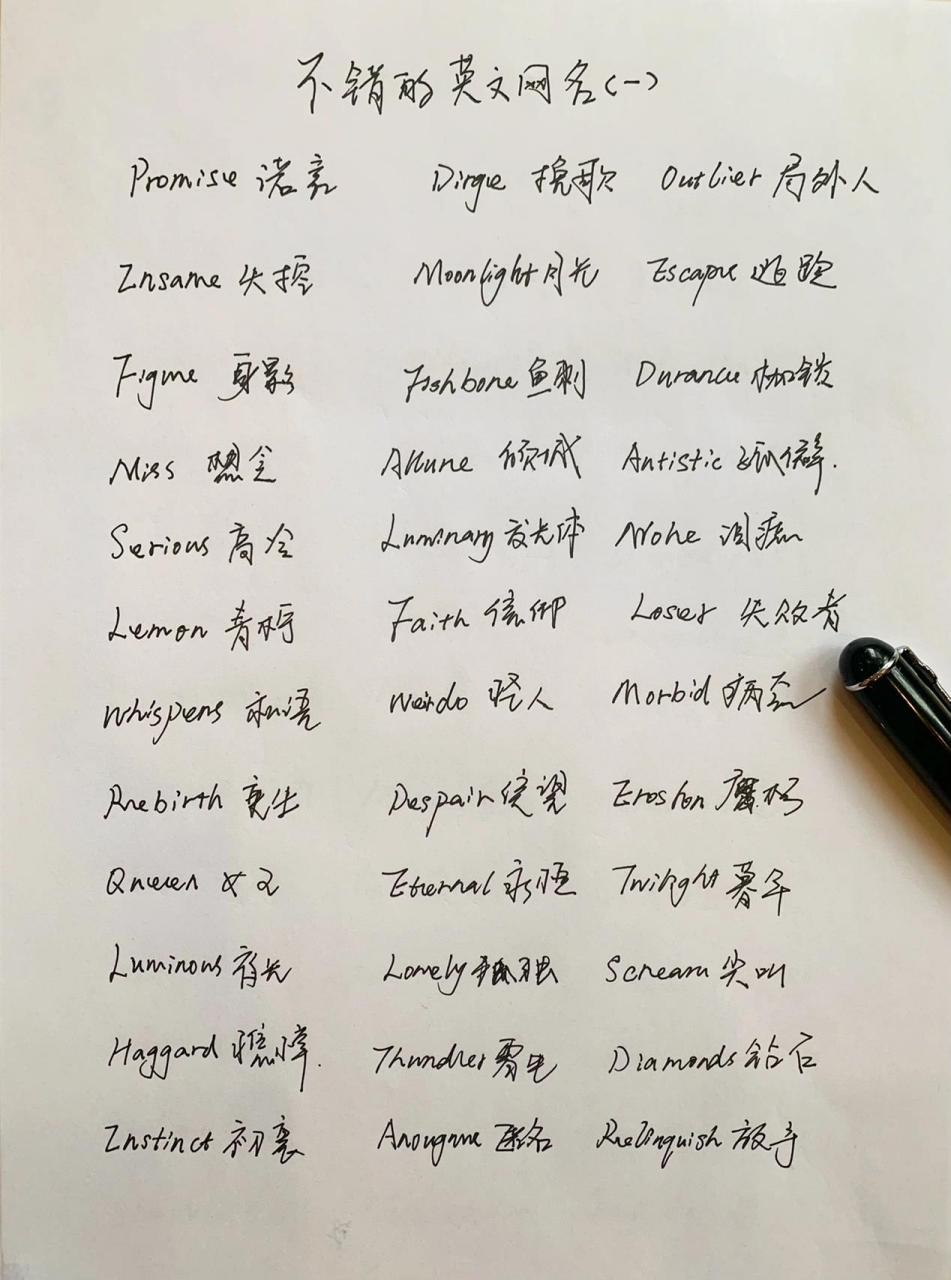 不错的英文网名(一)
Promise 诺言 Dirge 挽歌 Outlier 局外人
Insame 失控 Moonlight 月光 Escape 逃跑
Figme 身影 Fishbone 鱼刺 Durance 枷锁
Miss 想念 Allure 倾城 Autistic 孤僻.
Serious 高冷 Luminary 发光体 泪痕
Lemon 青柠 Faith 信仰 Loser 失败者
Whispers 私语 Weirdo 怪人 Morbid 病态
Rebirth 重生 Despair 绝望 Erosion 腐朽
Queen 女王 Eternal 永恒 Twilight 暮年
Luminous 夜光 Lonely 孤独 Scream 尖叫
Haggard 憔悴. Thunder 雷电 Diamonds 钻石
Instinct 初衷 匿名 Relinquish 放手